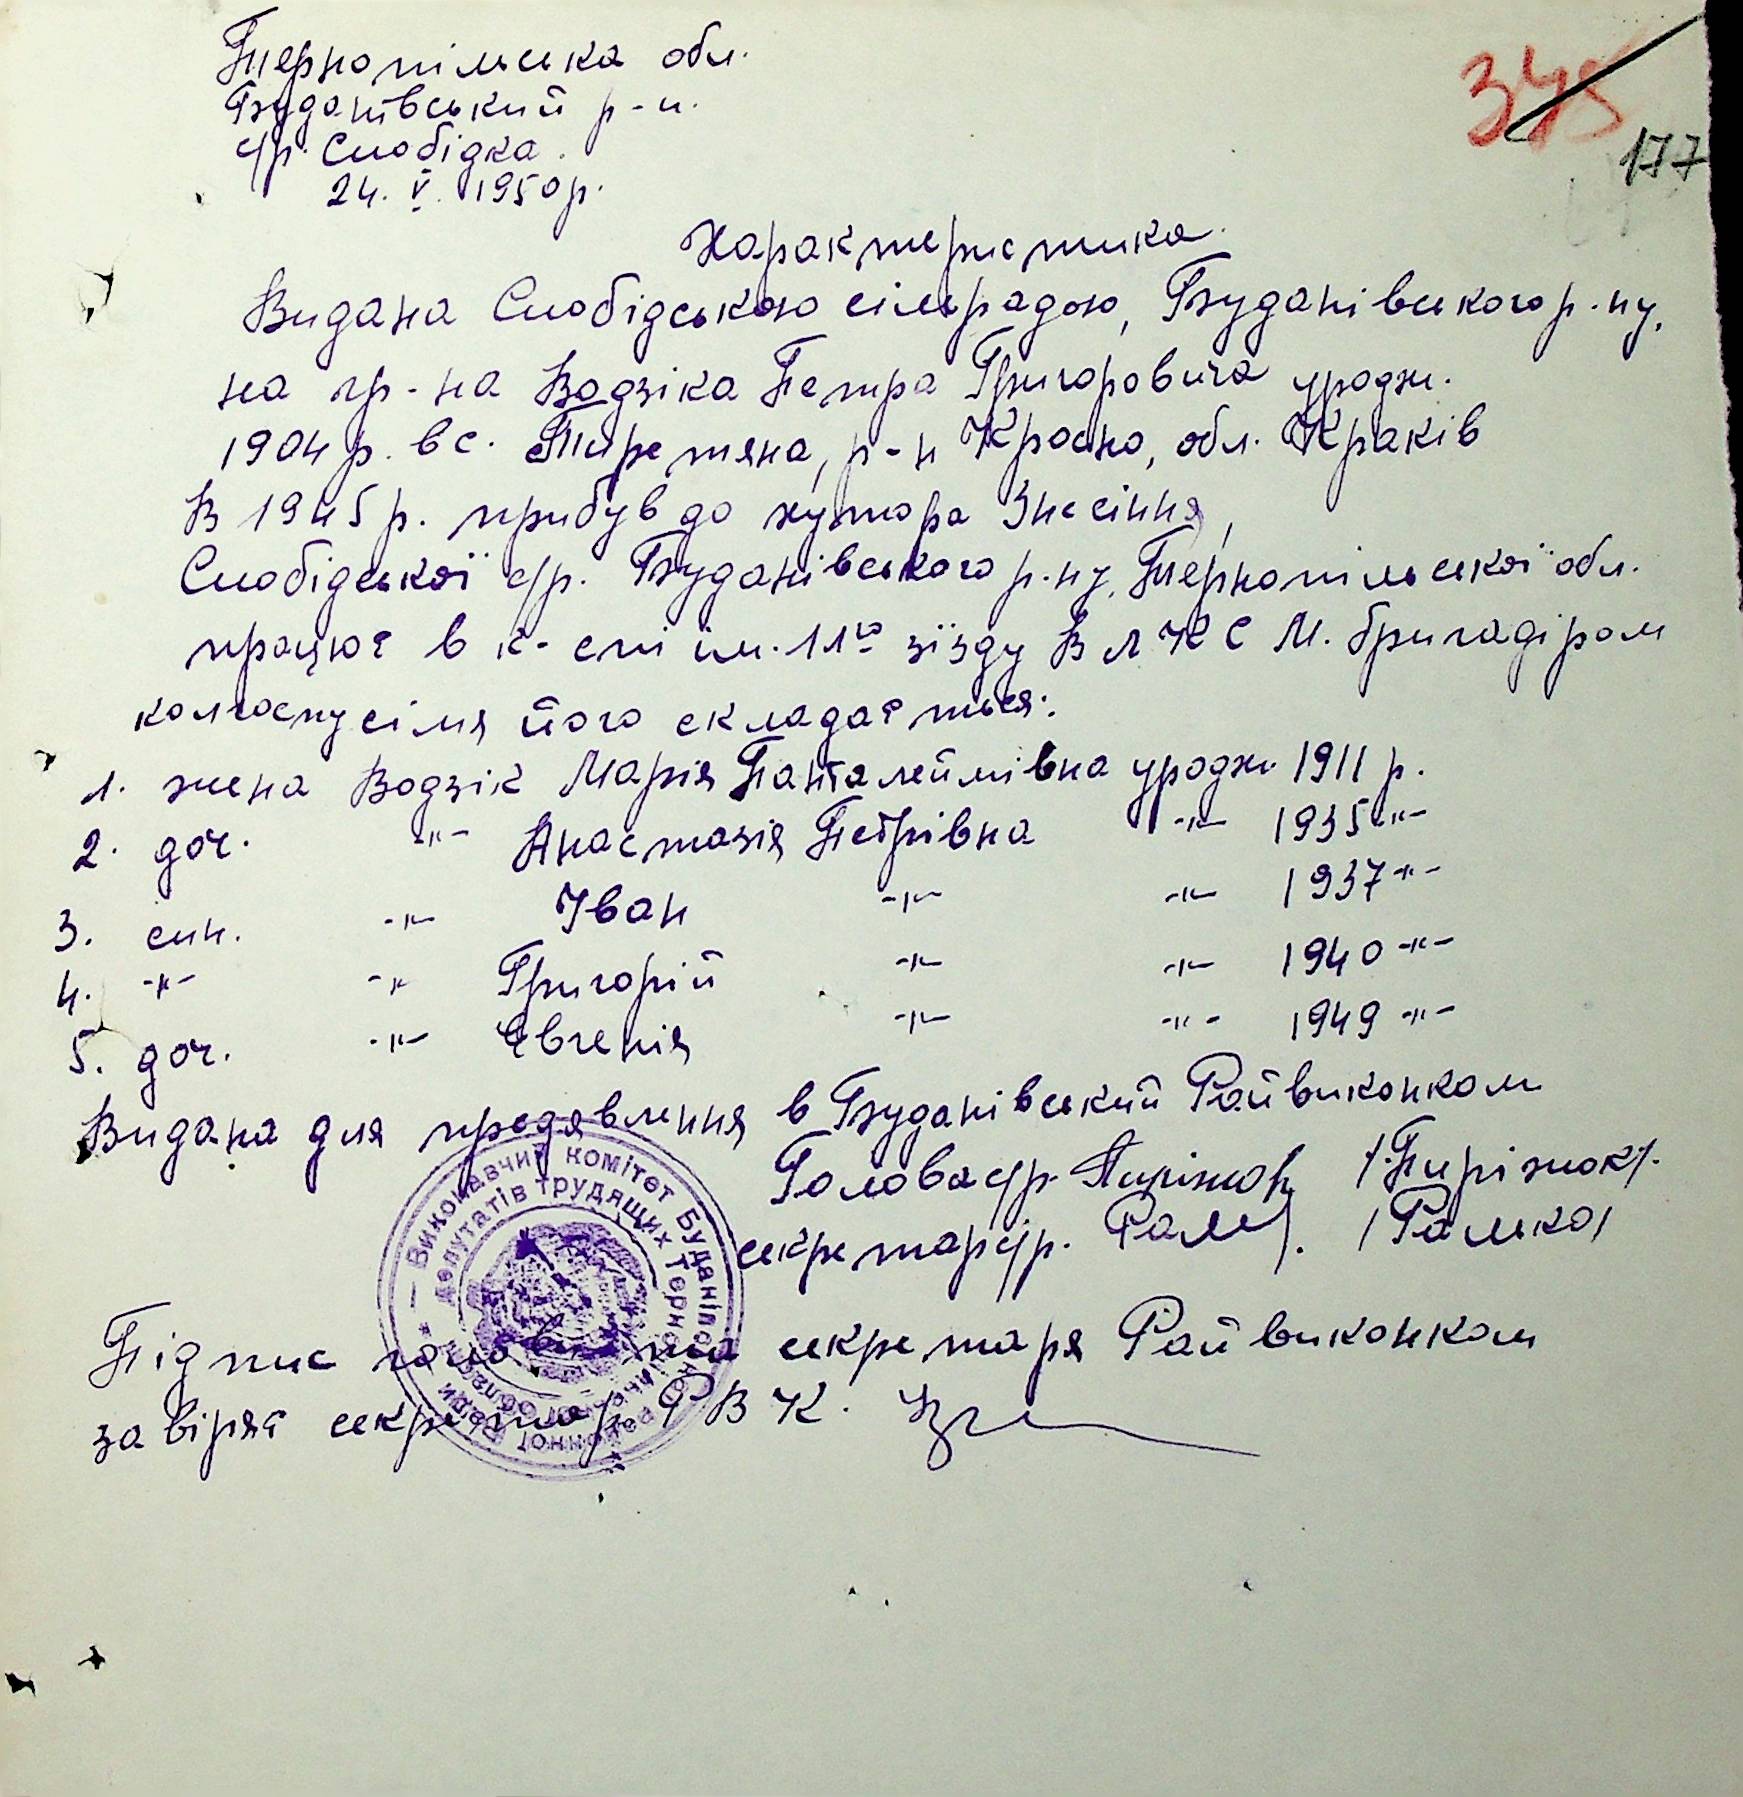 Тернопільська обл.
Буданівський р-н.
с/р. Слобідка.
24. V. 1950 р.
375
177
Характеристика.
Видана Слобідською сільрадою, Буданівського р-ну,
на гр-на Водзіка Петра Григоровича уродж.
1904 р. в с. Тиретяна, р-н Кросно, обл. Краків
В 1945 р. прибув до хутора Знесіння,
Слобідської с/р. Буданівського р-ну, Тернопільської обл.
працює в к-спі ім. 11го зїзду ВЛКСМ. бригадіром
колгоспу сімя його складається:
1. жена Водзік Марія Панталеймівна уродж. 1911 р.
2. доч. -"- Анастазія Петрівна -"- 1935 -"-
3. син. -"- Іван -"- -"- 1937 -"-
4. -"- -"- Григорій -"- -"- 1940 -"-
5. доч. -"- Євгенія -"- -"- 1949 -"-
Видана для предявлення в Буданівський Райвиконком
Голова с/р. Пиріжок /Пиріжок/.
секретар с/р. /Ралько/
Підпис голови та секретаря Райвиконком
завіряє секретар РВК.
Виконавчий комітет Буданівської районної Ради
депутатів трудящих Тернопільської області